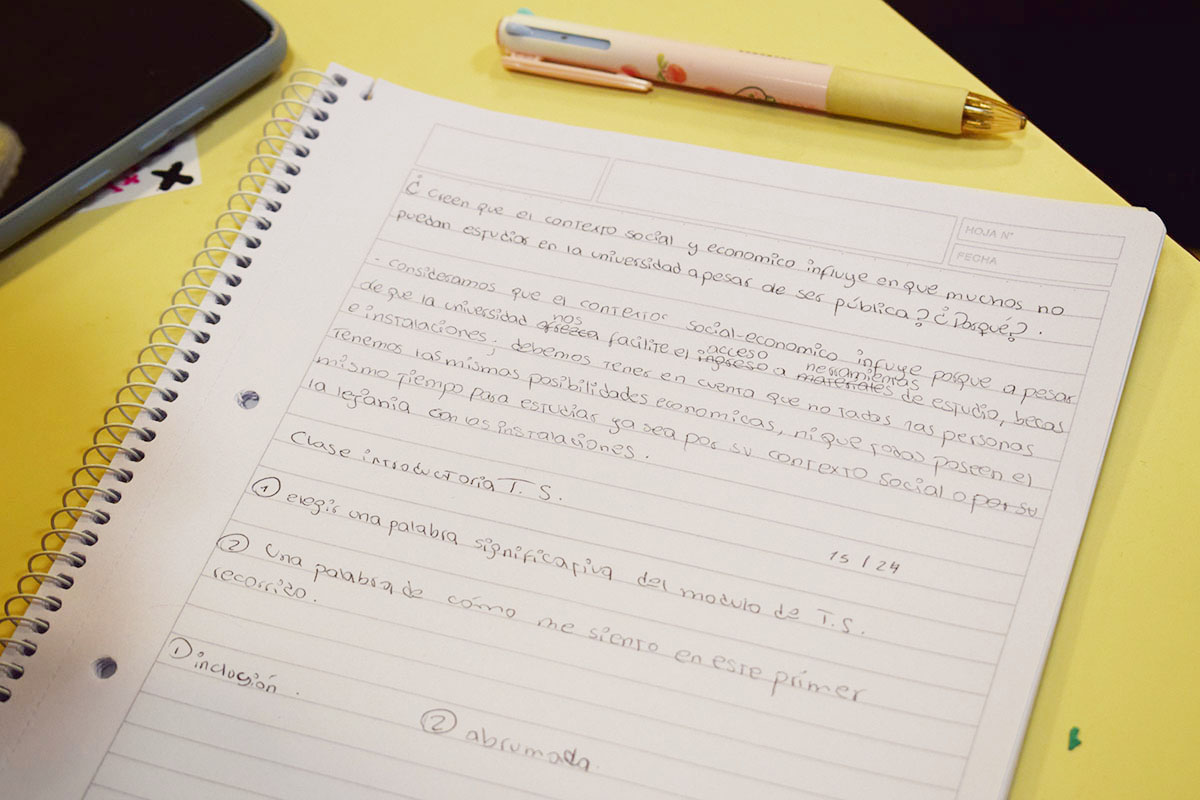 HOJA N°
FECHA
¿ creen que el contexto social y economico influye en que muchos no
puedan estudiar en la universidad apesar de ser pública? ¿Porqué?.
- consideramos que el contexto social-economico influye porque a pesar
de que la universidad nos facilite el acceso a herramientas de estudio, becas
e instalaciones; debemos tener en cuenta que no todas las personas
tenemos las mismas posibilidades economicas, ni que todas poseen el
mismo tiempo para estudiar ya sea por su contexto social o por su
la lejania con las instalaciones.
Clase introductoria T. S.
15 / 24
① elegir una palabra significativa del modulo de T. S.
② una palabra de cómo me siento en este prímer
recorrido.
① inclusión.
② abrumada.